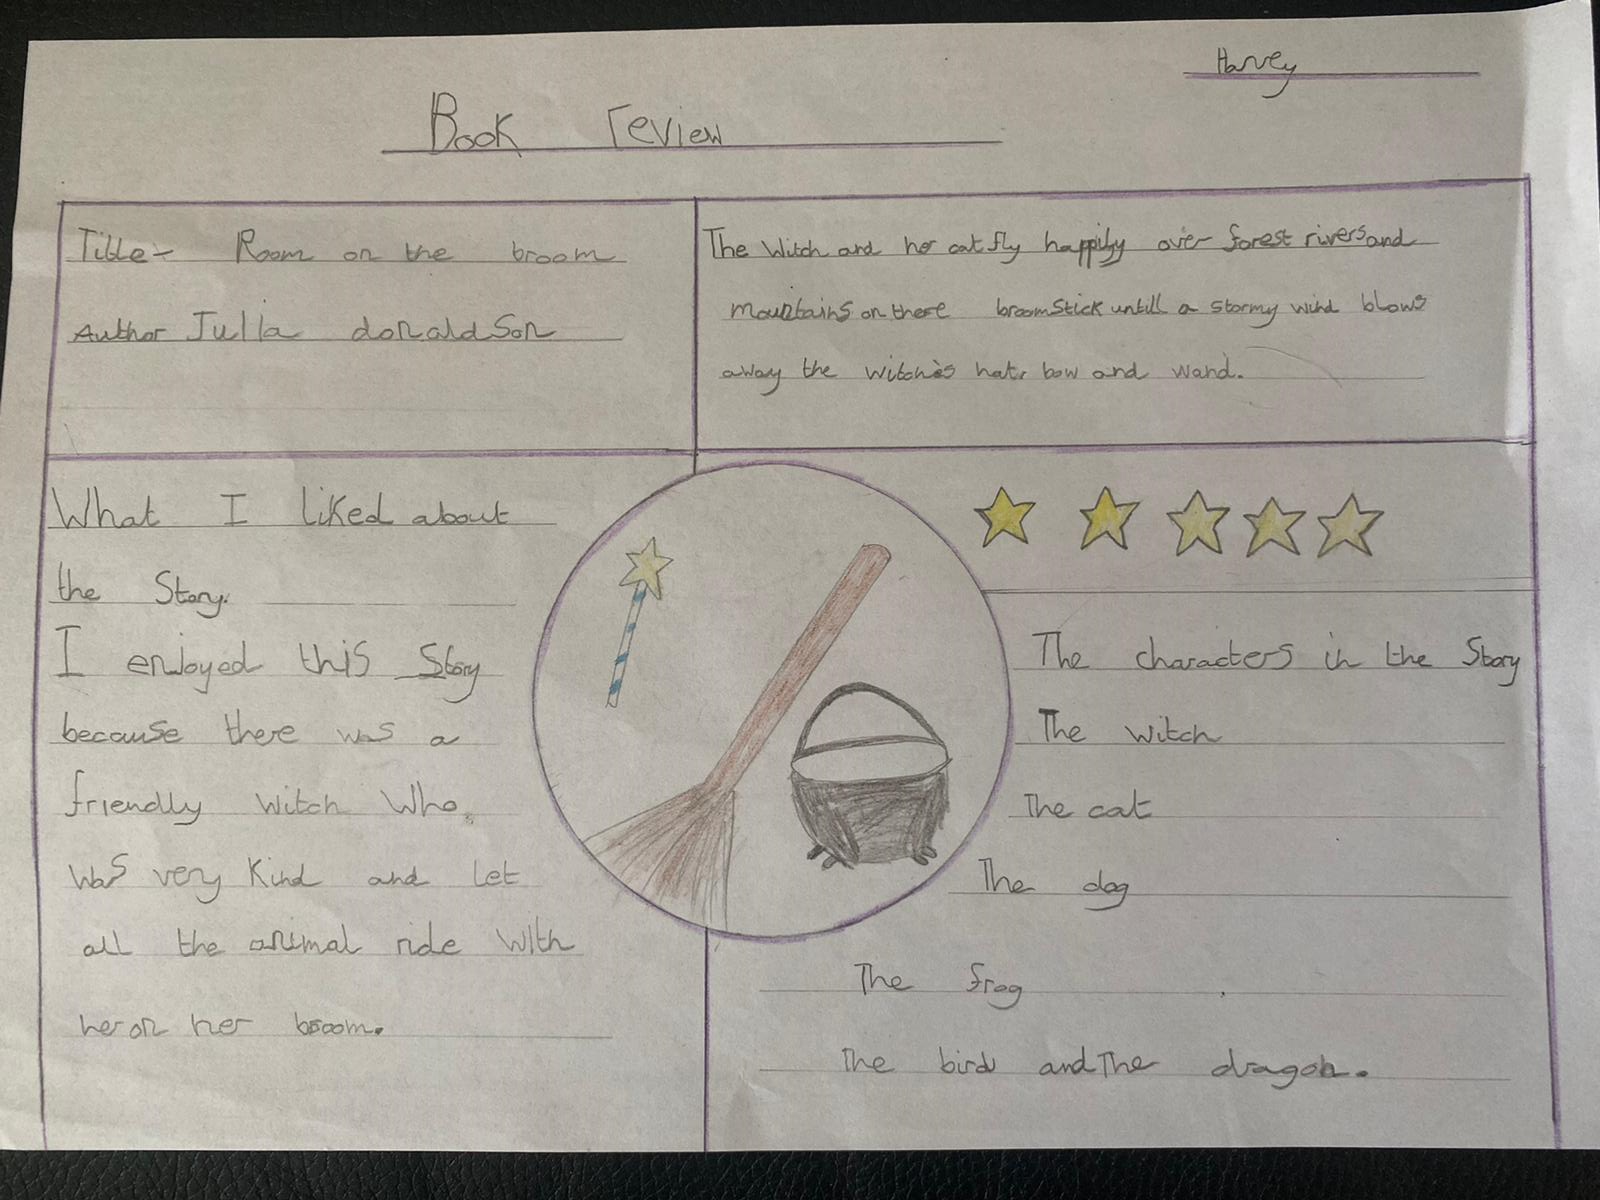 Harvey
Book review
Title- Room on the broom
Author Julia donaldson
The Witch and her cat fly happily over forest rivers and
mountains on there broomstick untill a stormy wind blows
away the witches hat, bow and wand.
What I liked about
the Story.
I enjoyed this Story
because there was a
friendly witch who
was very kind and let
all the animal ride with
her on her broom.
The characters in the Story
The witch
The cat
The dog
The frog
The bird and The dragon.